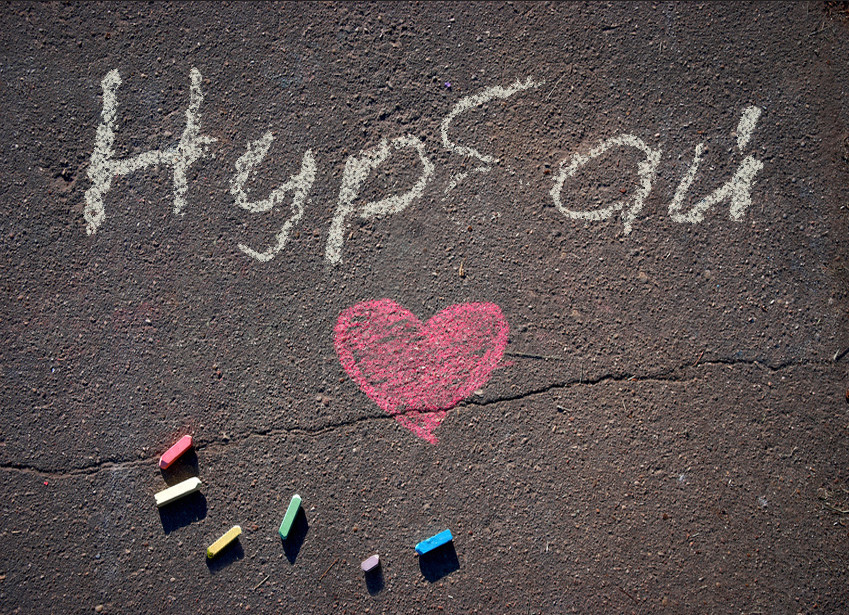 Нурбай